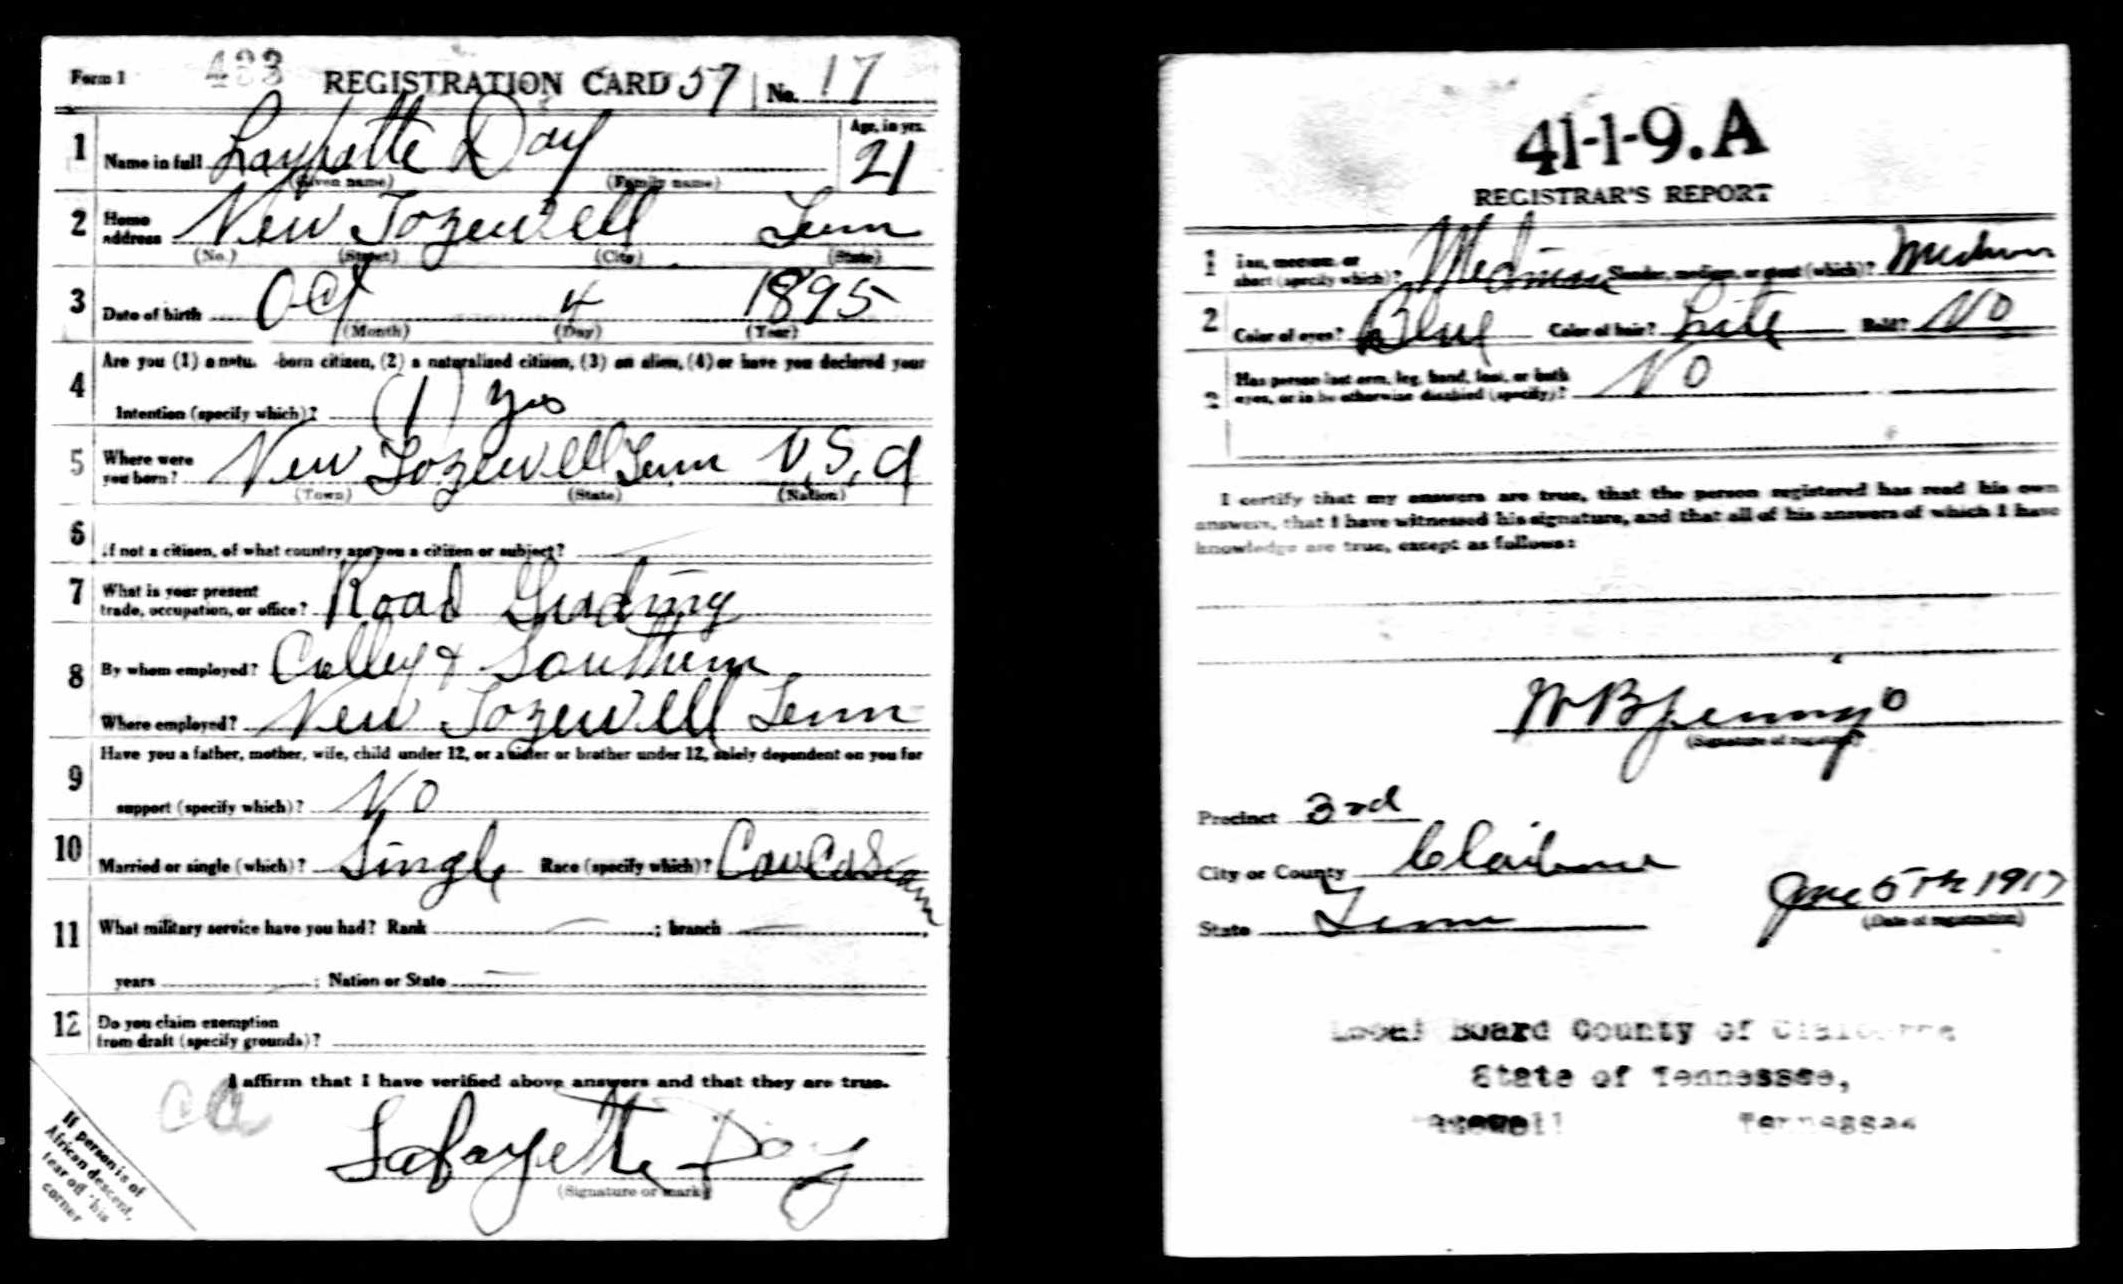 Form 1 433 REGISTRATION CARD 57 No. 17
1 Name in full Layfatte Day Age, in yrs. 21
(Given name) (Family name)
2 Home address New Tozewell Tenn
(No.) (Street) (City) (State)
3 Date of birth Oct 4 1895
(Month) (Day) (Year)
4 Are you (1) a natu. -born citizen, (2) a naturalized citizen, (3) an alien, (4) or have you declared your
intention (specify which)? (1) yes
5 Where were you born? New Tozewell Tenn U.S.A
(Town) (State) (Nation)
6 If not a citizen, of what country are you a citizen or subject?
7 What is your present trade, occupation, or office? Road Grading
8 By whom employed? Calley & Southern
Where employed? New Tozewell Tenn
9 Have you a father, mother, wife, child under 12, or a sister or brother under 12, solely dependent on you for
support (specify which)? No
10 Married or single (which)? Single Race (specify which)? Caucasian
11 What military service have you had? Rank — ; branch —
years ; Nation or State —
12 Do you claim exemption
from draft (specify grounds)?
I affirm that I have verified above answers and that they are true.
Lafayette Day
(Signature or mark)
If person is of
African descent,
tear off this
corner
41-1-9.A
REGISTRAR'S REPORT
1 Tall, medium, or short (specify which)? Medium Slender, medium, or stout (which)? Medium
2 Color of eyes? Blue Color of hair? Lite Bald? No
3 Has person lost arm, leg, hand, foot, or both
eyes, or is he otherwise disabled (specify)? No
I certify that my answers are true, that the person registered has read his own
answers, that I have witnessed his signature, and that all of his answers of which I have
knowledge are true, except as follows:
W B Jennings
(Signature of registrar)
Precinct 3rd
City or County Claiborne
State Tenn
June 5th 1917
(Date of registration)
Local Board County of Claiborne
State of Tennessee,
Tazewell Tennessee